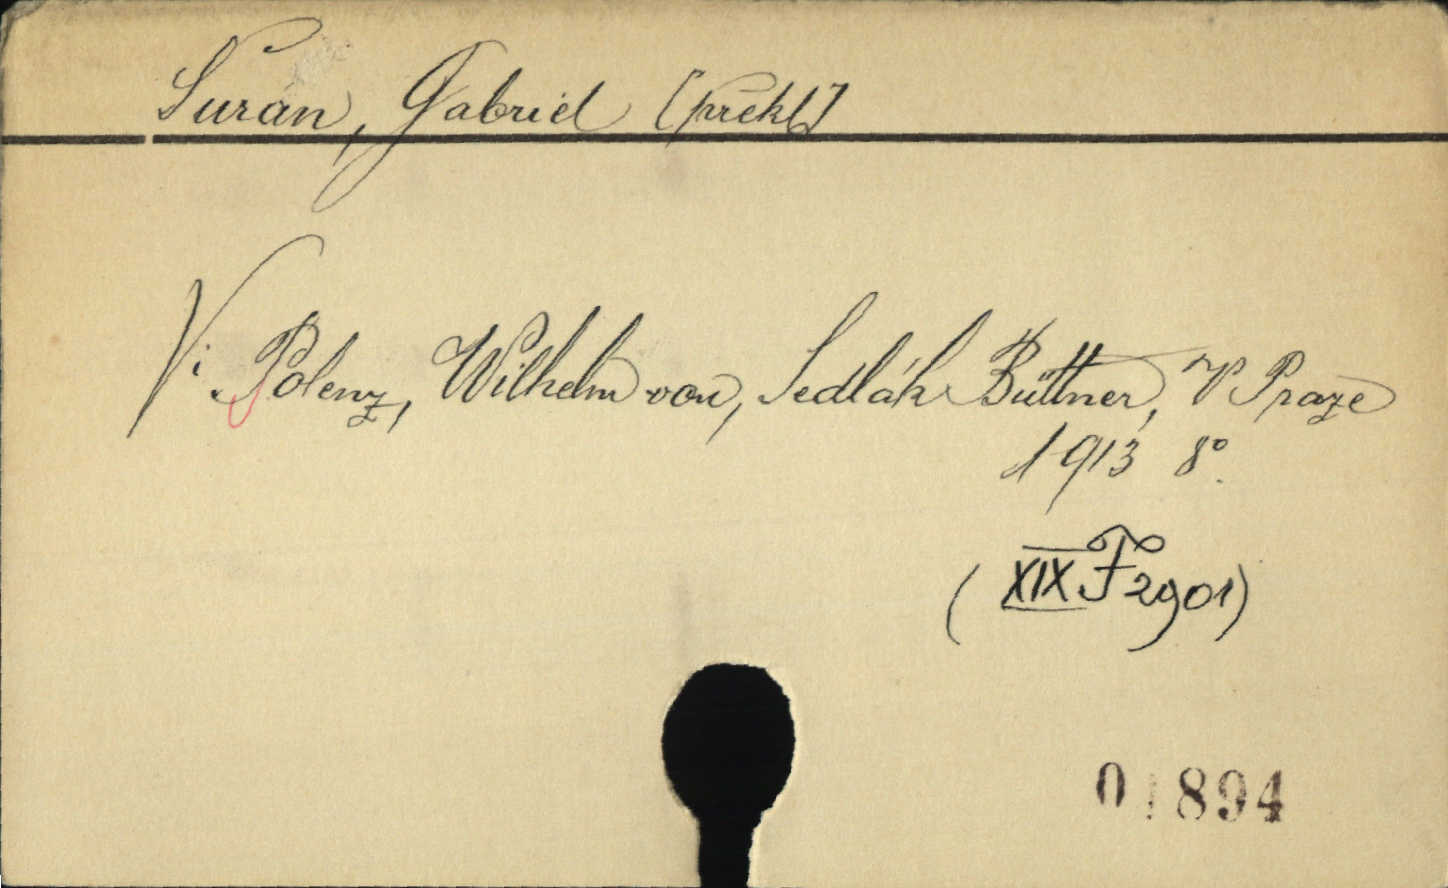 Suran, Gabriel [překl]
Vi Polenz, Wilhelm von, Sedlák Büttner, V Praze
1913 8°.
(XIX F 2901)
01894